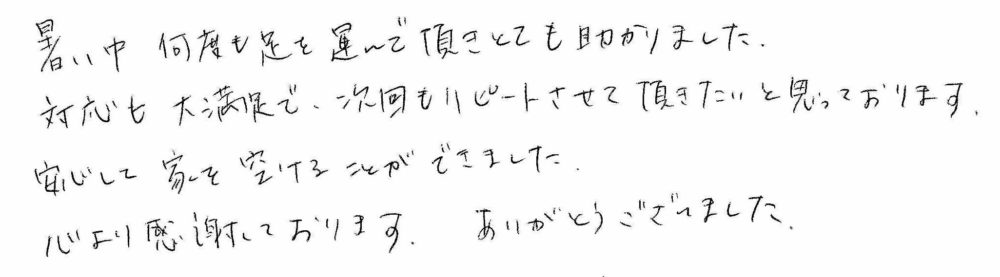 暑い中 何度も足を運んで頂きとても助かりました.
対応も大満足で、次回もリピートさせて頂きたいと思っております.
安心して家を空けることができました.
心より感謝しております. ありがとうございました